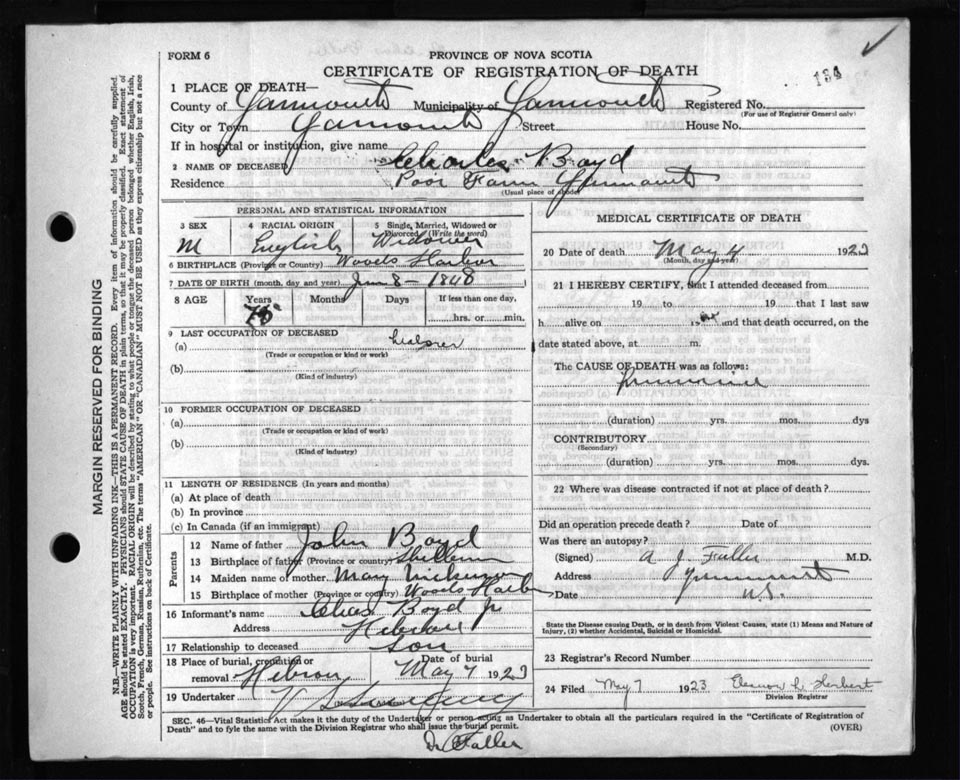 FORM 6
PROVINCE OF NOVA SCOTIA
CERTIFICATE OF REGISTRATION OF DEATH
1 PLACE OF DEATH—
County of Yarmouth Municipality of Yarmouth Registered No.
(For use of Registrar General only)
City or Town Yarmouth Street House No.
If in hospital or institution, give name
2 NAME OF DECEASED Charles Boyd
Residence Poor Farm Yarmouth
(Usual place of abode)
PERSONAL AND STATISTICAL INFORMATION
3 SEX 4 RACIAL ORIGIN 5 Single, Married, Widowed or Divorced (Write the word)
M English Widower
6 BIRTHPLACE (Province or Country) Woods Harbor
7 DATE OF BIRTH (month, day and year) 8 - 1848
8 AGE Years Months Days If less than one day,
75 hrs. or min.
9 LAST OCCUPATION OF DECEASED
(a)
(Trade or occupation or kind or work)
(b)
(Kind of industry)
10 FORMER OCCUPATION OF DECEASED
(a)
(Trade or occupation or kind of work)
(b)
(Kind of industry)
11 LENGTH OF RESIDENCE (In years and months)
(a) At place of death
(b) In province
(c) In Canada (if an immigrant)
Parents
12 Name of father John Boyd
13 Birthplace of father (Province or country)
14 Maiden name of mother Mary
15 Birthplace of mother (Province or country) Woods Harbor
16 Informant's name Chas Boyd Jr
Address Hebron
17 Relationship to deceased son
18 Place of burial, cremation or removal Hebron Date of burial May 7 1923
19 Undertaker
MEDICAL CERTIFICATE OF DEATH
20 Date of death May 4 1923
(Month, day and year)
21 I HEREBY CERTIFY, that I attended deceased from
19 to 19 that I last saw
h alive on 19 and that death occurred, on the
date stated above, at m.
The CAUSE OF DEATH was as follows:
Pneumonia
(duration) yrs. mos. dys
CONTRIBUTORY
(Secondary)
(duration) yrs. mos. dys.
22 Where was disease contracted if not at place of death?
Did an operation precede death? Date of
Was there an autopsy?
(Signed) A J Fuller M.D.
Address Yarmouth
Date N.S.
State the Disease causing Death, or in death from Violent Causes, state (1) Means and Nature of
Injury, (2) whether Accidental, Suicidal or Homicidal.
23 Registrar's Record Number
24 Filed May 7 1923 Herbert
Division Registrar
SEC. 46—Vital Statistics Act makes it the duty of the Undertaker or person acting as Undertaker to obtain all the particulars required in the "Certificate of Registration of
Death" and to fyle the same with the Division Registrar who shall issue the burial permit.
(OVER)
Dr Fuller
MARGIN RESERVED FOR BINDING
N.B.—WRITE PLAINLY WITH UNFADING INK—THIS IS A PERMANENT RECORD. Every item of information should be carefully supplied.
AGE should be stated EXACTLY. PHYSICIANS should STATE CAUSE OF DEATH in plain terms, so that it may be properly classified. Exact statement of
OCCUPATION is very important. RACIAL ORIGIN will be described by stating to what people or tongue the deceased person belonged whether English, Irish,
Scotch, French, German, Russian, Ruthenian, etc. The terms "AMERICAN" or "CANADIAN" MUST NOT BE USED as they express citizenship but not a race
or people. See instructions on back of Certificate.